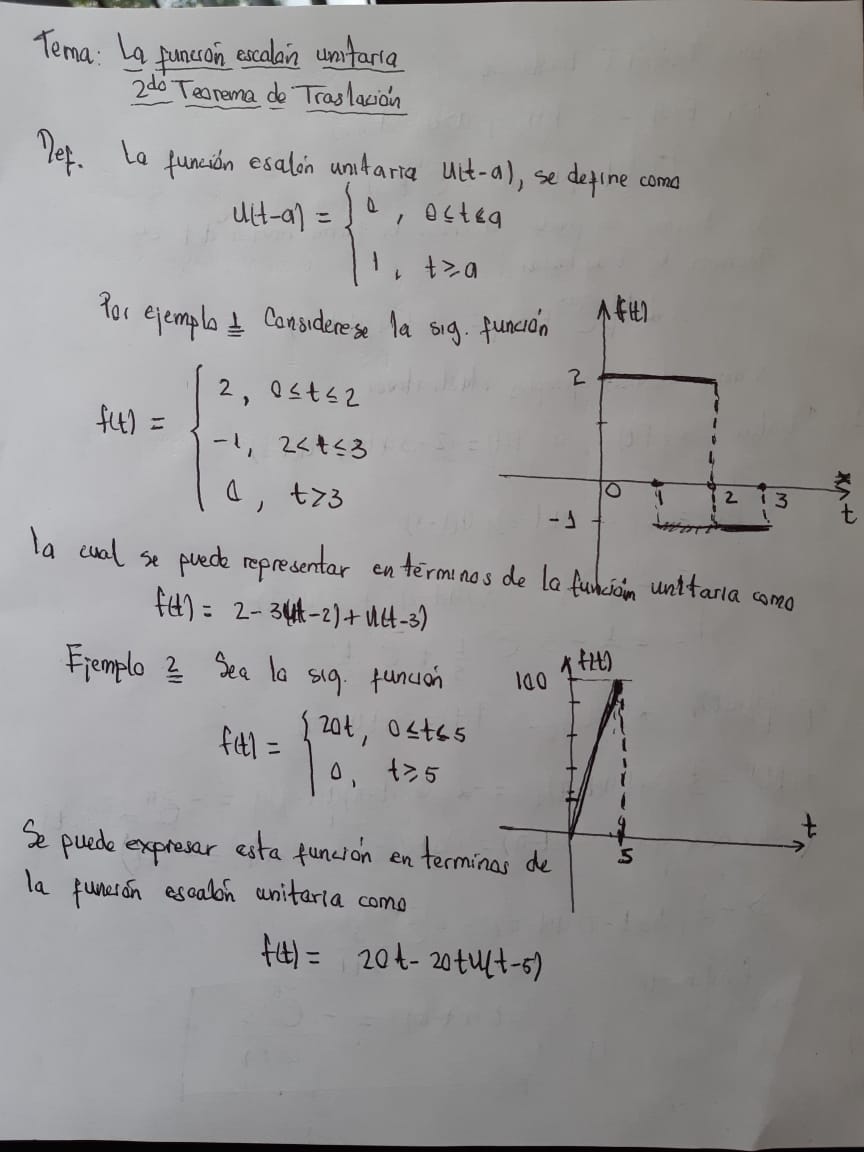 Tema: La función escalón unitaria
2do Teorema de Traslación
Def. La función esalón unitaria U(t-a), se define como
U(t-a) = { 0, 0≤t≤a
1, t≥a
Por ejemplo 1 Considerese la sig. función
f(t)
2
f(t) = { 2, 0≤t≤2
-1, 2<t≤3
0, t>3
0 1 2 3
t
-1
la cual se puede representar en términos de la función unitaria como
f(t) = 2-3U(t-2)+U(t-3)
Ejemplo 2 Sea la sig. función
f(t)
100
f(t) = { 20t, 0≤t≤5
0, t≥5
t
5
Se puede expresar esta función en terminos de
la función escalón unitaria como
f(t) = 20t-20tU(t-5)